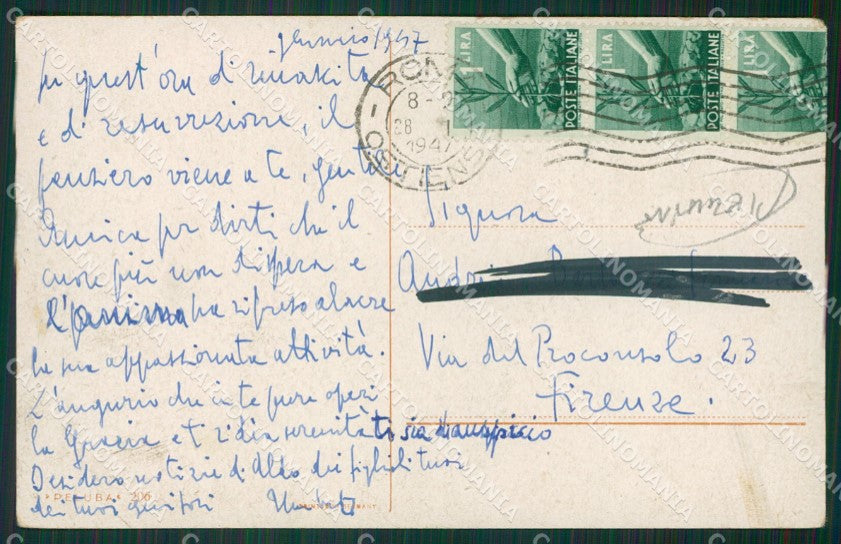 gennaio 1947
In quest'ora di rinascita
e di resurrezione, il
pensiero viene a te, gentile
Amica per dirti che il
cuore più non dispera e
l'anima ha ripreso alacre
la sua appassionata attività.
L'augurio che in te pure operi
la Grazia e ti ridia serenità ti sia d'auspicio
Desidero notizie di Aldo dei figlioli tuoi
dei tuoi genitori Umberto
"PELUBA" 216
1 LIRA
POSTE ITALIANE
LIRA
POSTE ITALIANE
LIRA
ROMA
8 -
28 1
1947
OSTIENSE
Signora
Via del Proconsolo 23
Firenze.
CARTOLINOMANIA